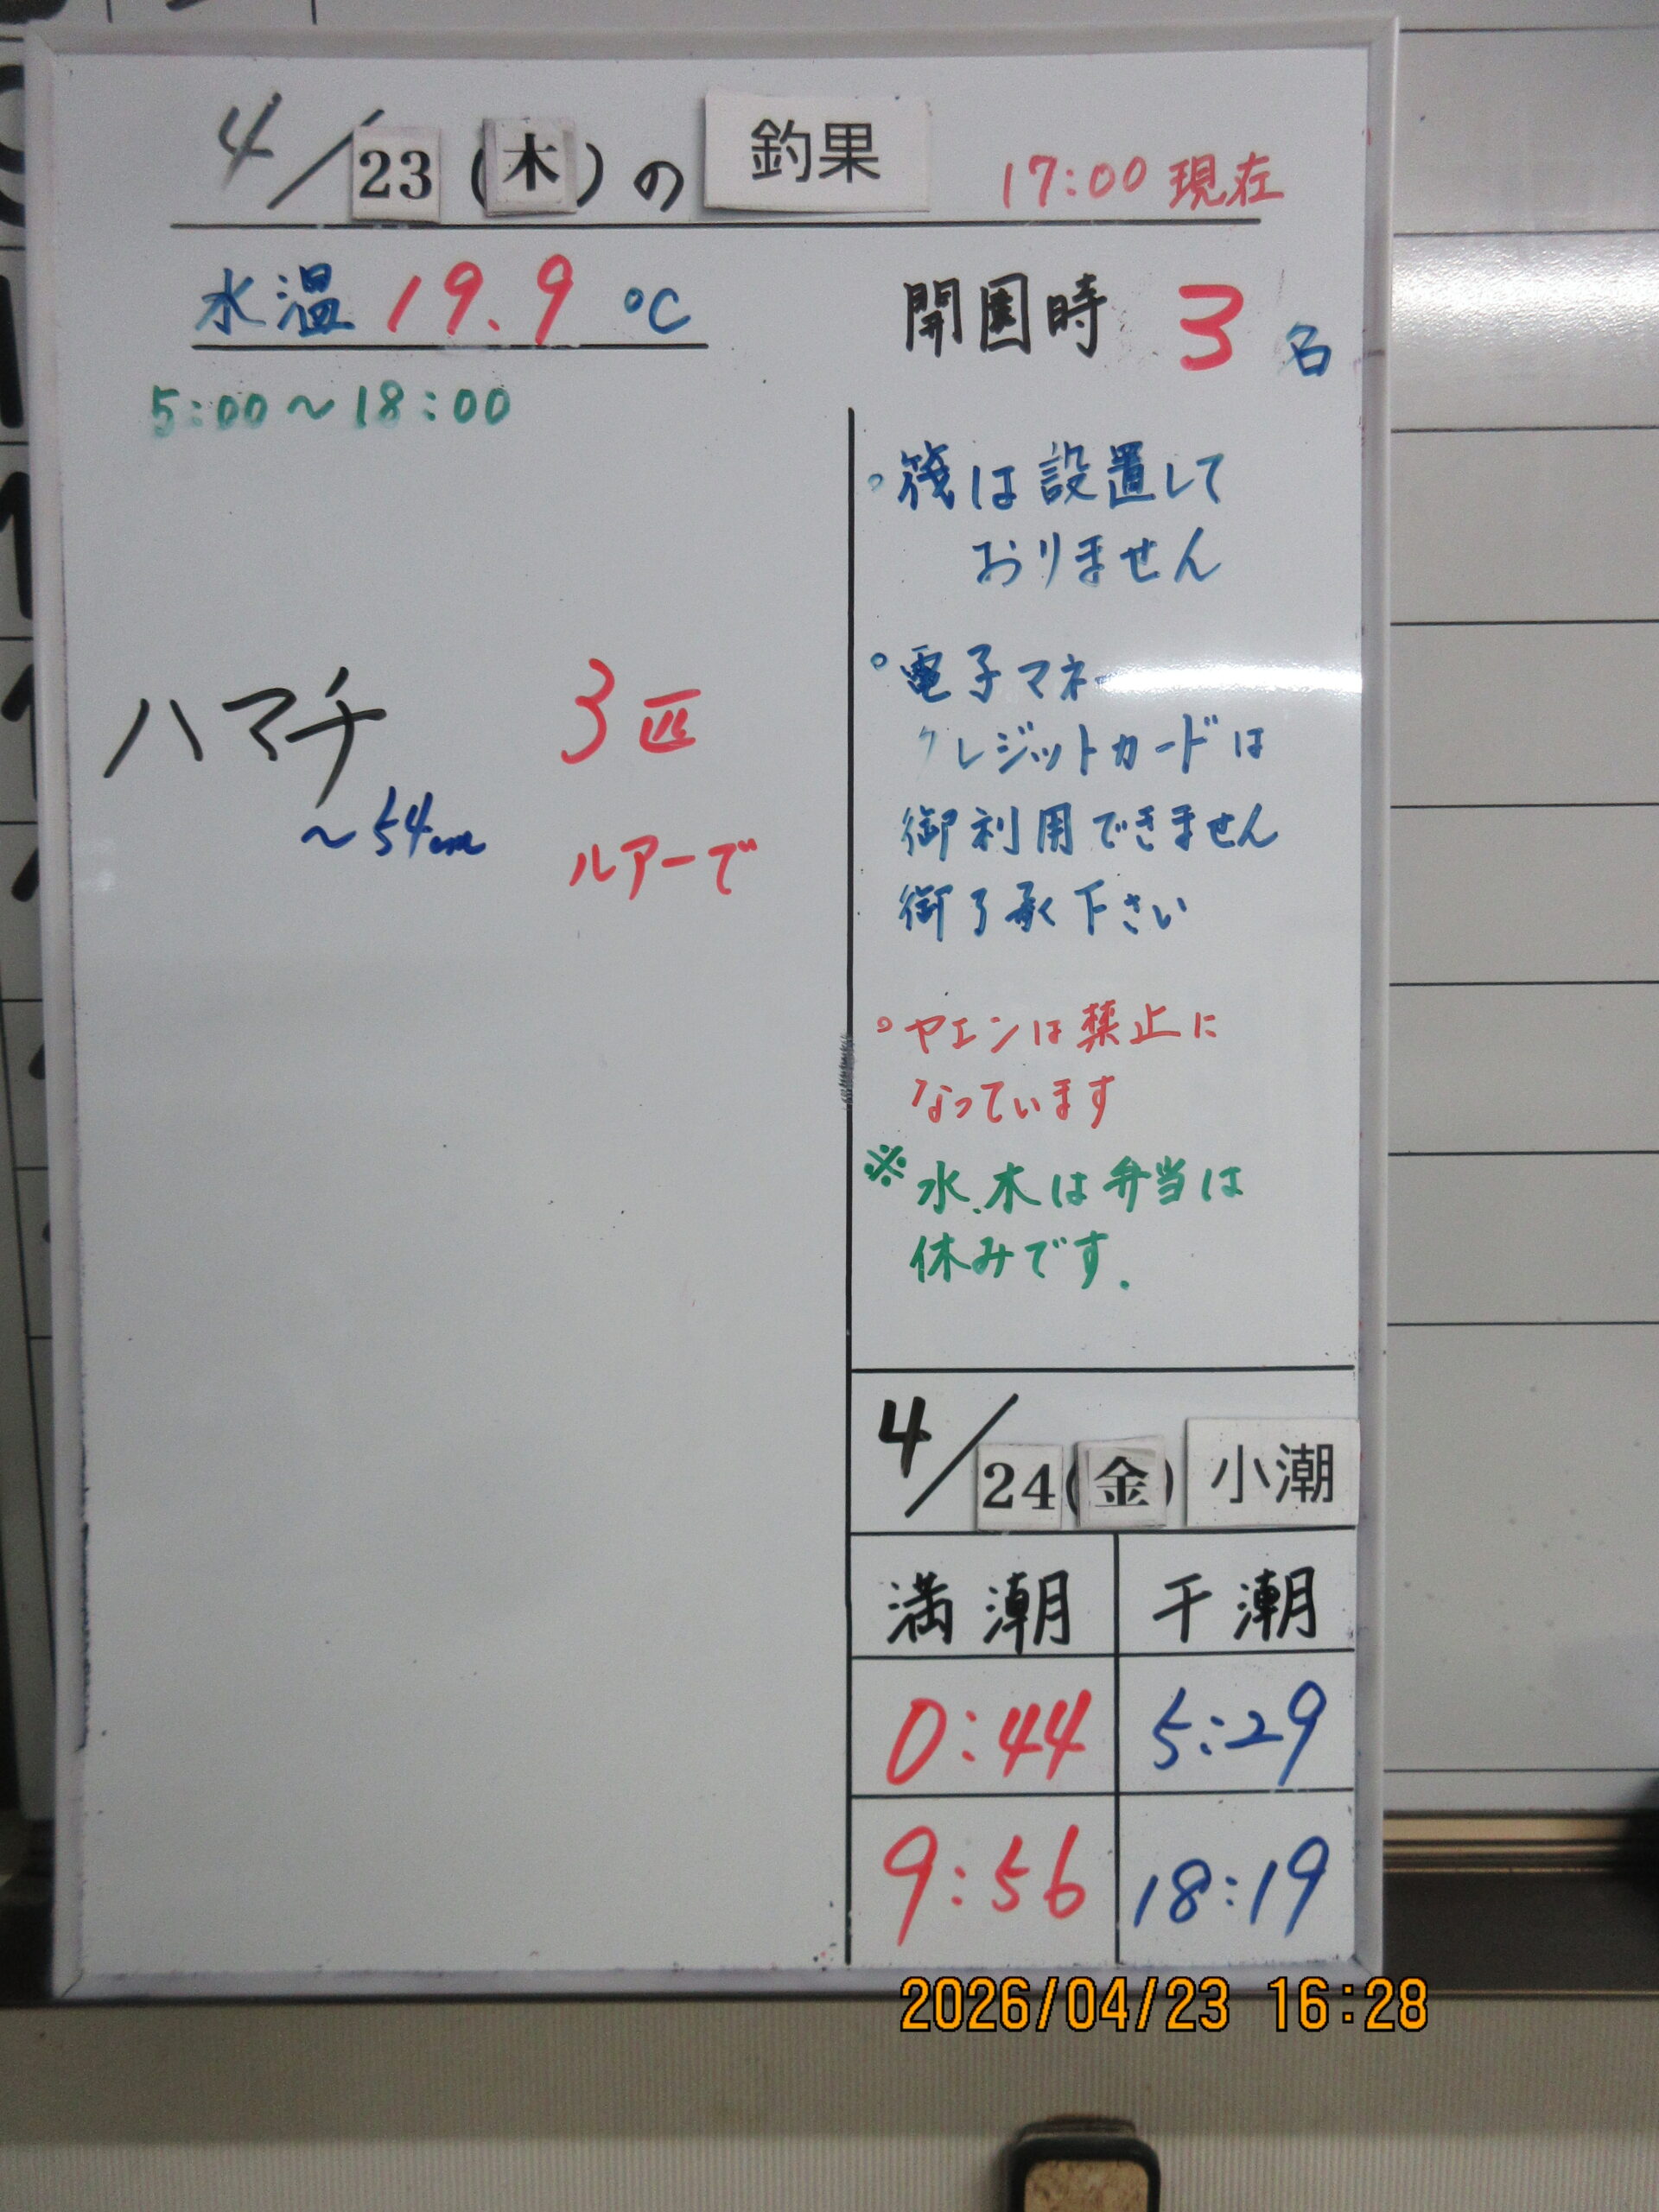 4/23(木)の 釣果 17:00 現在
水温 19.9 ℃
開園時 3名
5:00〜18:00
ハマチ 3匹
〜54cm ルアーで
。筏は設置して
おりません
。電子マネー
クレジットカードは
御利用できません
御了承下さい
。ヤエンは禁止に
なっています
※水.木は弁当は
休みです.
4/24(金) 小潮
満潮 干潮
0:44 5:29
9:56 18:19
2026/04/23 16:28